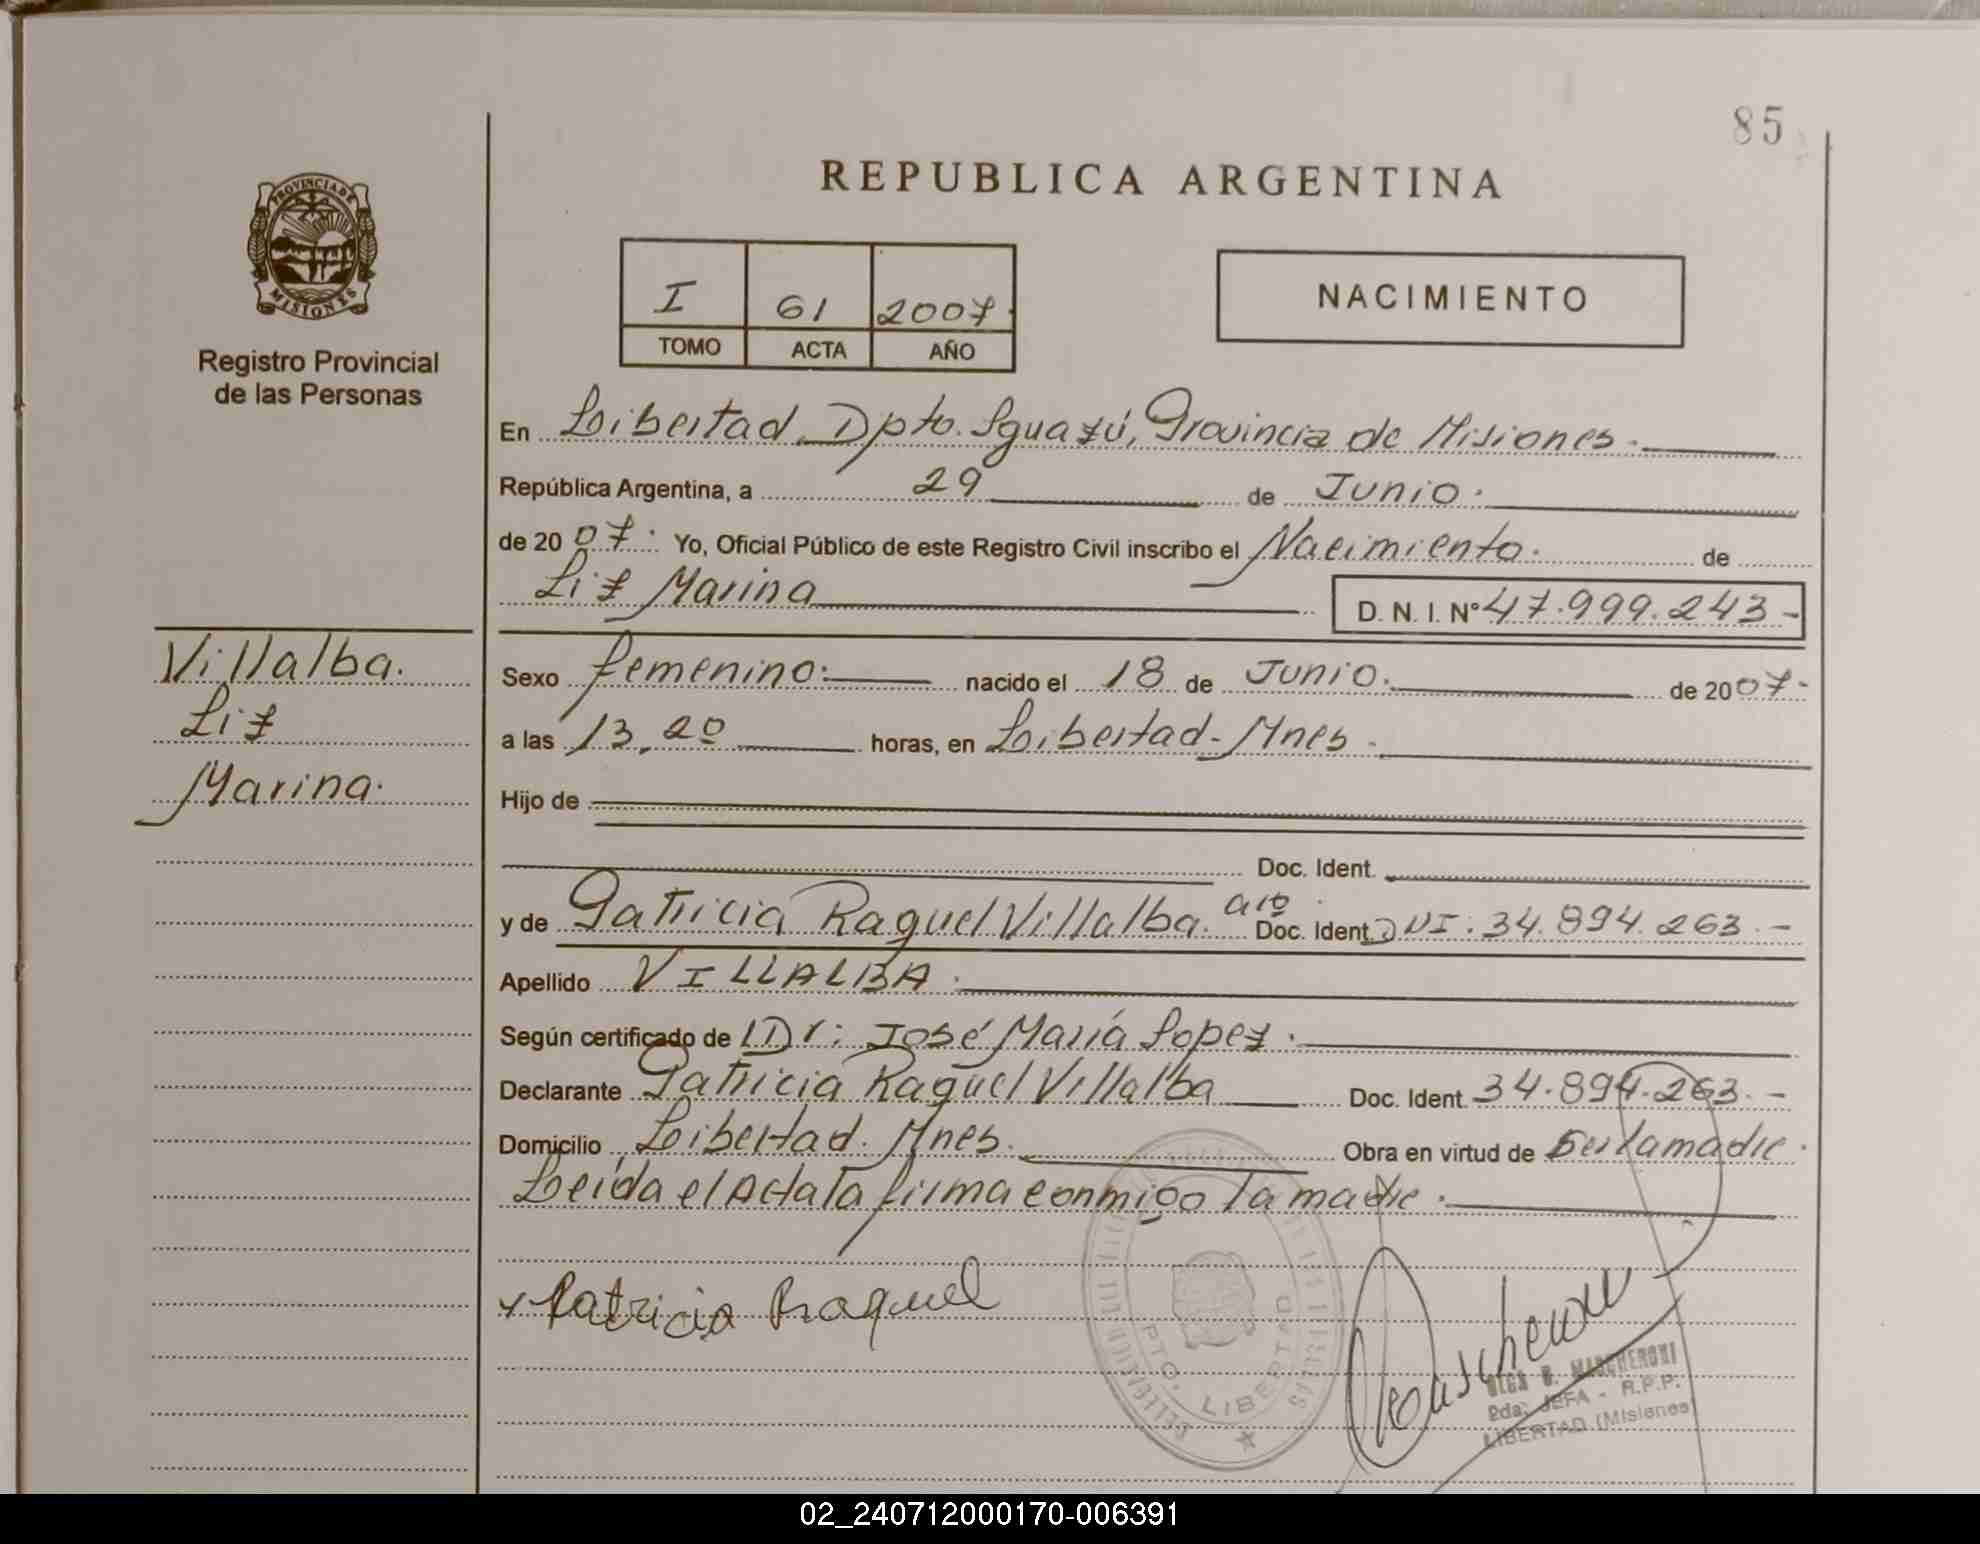 85
REPUBLICA ARGENTINA
PROVINCIA DE
MISIONES
Registro Provincial
de las Personas
I 61 2007
TOMO ACTA AÑO
NACIMIENTO
En Libertad, Dpto. Iguazú, Provincia de Misiones.
República Argentina, a 29 de Junio.
de 2007. Yo, Oficial Público de este Registro Civil inscribo el Nacimiento. de
Liz Marina D. N. I. Nº 47.999.243-
Villalba.
Liz
Marina.
Sexo femenino. nacido el 18 de Junio. de 2007-
a las 13,20 horas, en Libertad-Mnes.
Hijo de
Doc. Ident.
y de Patricia Raquel Villalba. Doc. Ident. DNI: 34.894.263.-
Apellido VILLALBA.
Según certificado de Dr: José María Lopez.
Declarante Patricia Raquel Villalba Doc. Ident. 34.894.263.-
Domicilio Libertad. Mnes. Obra en virtud de Ser la madre.
Leída el Acta la firma conmigo la madre.
Patricia Raquel
PTO. LIBERTAD
2da. JEFA - R.P.P.
LIBERTAD (Misiones)
02_240712000170-006391